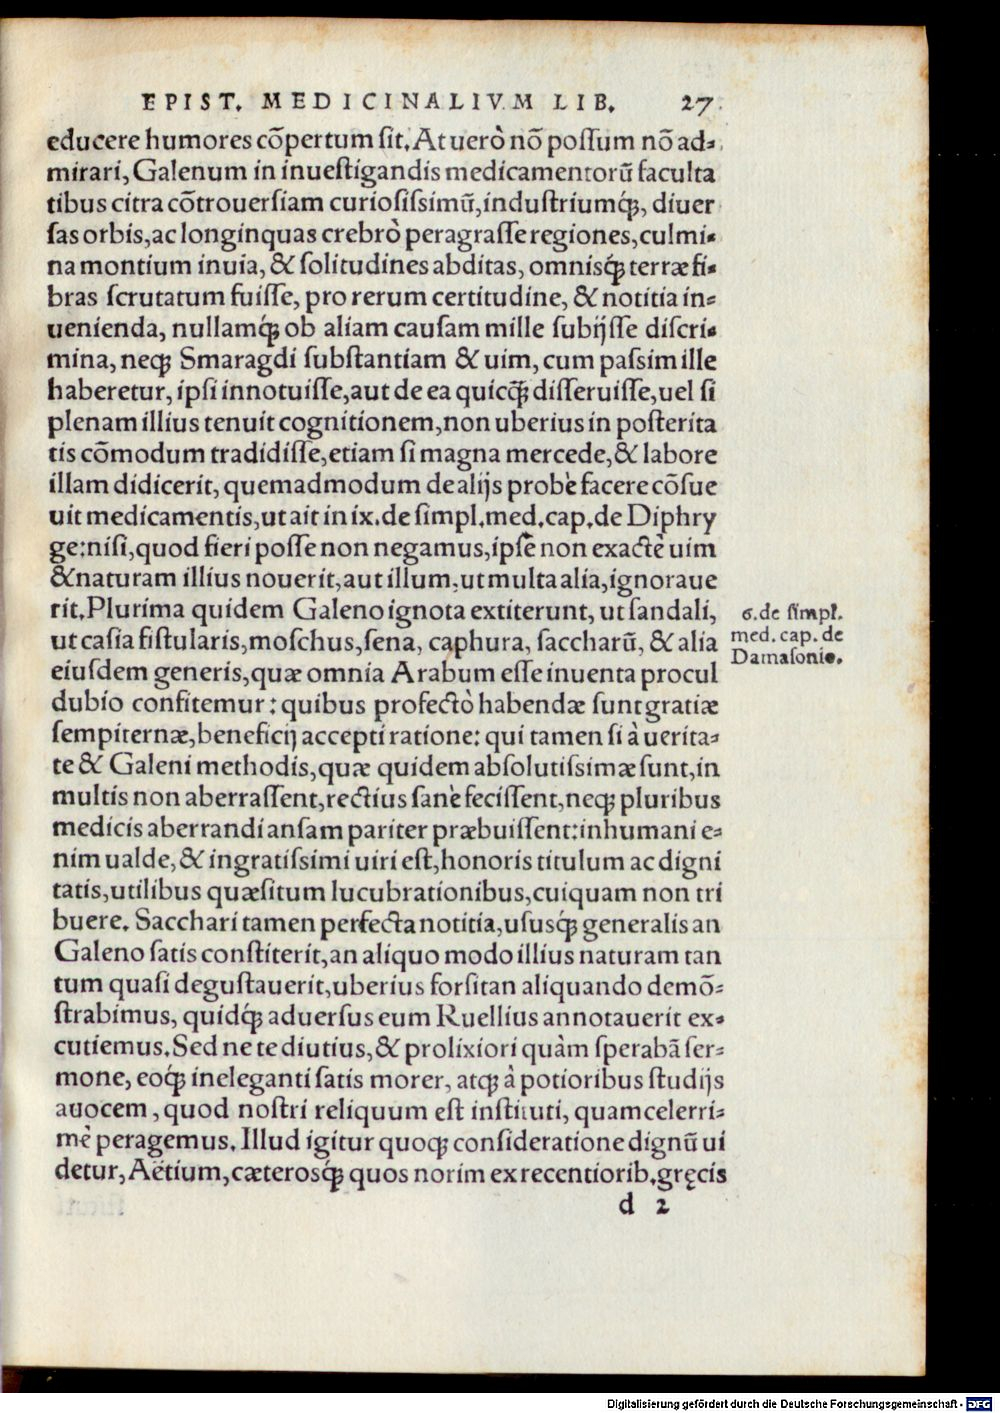 EPIST. MEDICINALIVM LIB. 27
educere humores cõpertum sit. At uerò nõ possum nõ ad-
mirari, Galenum in inuestigandis medicamentorũ faculta
tibus citra cõtrouersiam curiosissimũ, industriumq́;, diuer
sas orbis, ac longinquas crebrò peragrasse regiones, culmi-
na montium inuia, & solitudines abditas, omnisq́; terræ fi-
bras scrutatum fuisse, pro rerum certitudine, & notitia in-
uenienda, nullamq́; ob aliam causam mille subijsse discri-
mina, neq; Smaragdi substantiam & uim, cum passim ille
haberetur, ipsi innotuisse, aut de ea quicq̃; disseruisse, uel si
plenam illius tenuit cognitionem, non uberius in posterita
tis cõmodum tradidisse, etiam si magna mercede, & labore
illam didicerit, quemadmodum de alijs probè facere cõsue
uit medicamentis, ut ait in ix. de simpl. med. cap. de Diphry
ge: nisi, quod fieri posse non negamus, ipse non exactè uim
& naturam illius nouerit, aut illum, ut multa alia, ignoraue
rit. Plurima quidem Galeno ignota extiterunt, ut sandali,
ut casia fistularis, moschus, sena, caphura, saccharũ, & alia
eiusdem generis, quæ omnia Arabum esse inuenta procul
dubio confitemur: quibus profectò habendæ sunt gratiæ
sempiternæ, beneficij accepti ratione: qui tamen si à uerita-
te & Galeni methodis, quæ quidem absolutissimæ sunt, in
multis non aberrassent, rectius sanè fecissent, neq; pluribus
medicis aberrandi ansam pariter præbuissent: inhumani e-
nim ualde, & ingratissimi uiri est, honoris titulum ac digni
tatis, utilibus quæsitum lucubrationibus, cuiquam non tri
buere. Sacchari tamen perfecta notitia, ususq́; generalis an
Galeno satis constiterit, an aliquo modo illius naturam tan
tum quasi degustauerit, uberius forsitan aliquando demõ-
strabimus, quidq́; aduersus eum Ruellius annotauerit ex-
cutiemus. Sed ne te diutius, & prolixiori quàm sperabã ser-
mone, eoq́; ineleganti satis morer, atq; à potioribus studijs
auocem, quod nostri reliquum est instituti, quam celerri-
mè peragemus. Illud igitur quoq; consideratione dignũ ui
detur, Aëtium, cæterosq́; quos norim ex recentiorib. gręcis
d 2
6. de simpl.
med. cap. de
Damasonio.
Digitalisierung gefördert durch die Deutsche Forschungsgemeinschaft - DFG